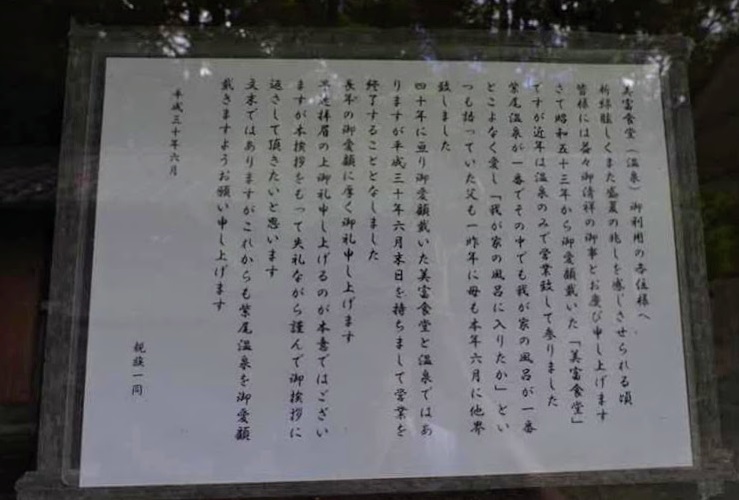 美富食堂(温泉)御利用の各位様へ
新緑眩しくまた盛夏の兆しを感じさせられる頃
皆様には益々御清祥の御事とお慶び申し上げます
さて昭和五十三年から御愛顧戴いた「美富食堂」
ですが近年は温泉のみで営業致して参りました
紫尾温泉が一番でその中でも我が家の風呂が一番
とこよなく愛し「我が家の風呂に入りたか」とい
つも語っていた父も一昨年に母も本年六月に他界
致しました
四十年に亘り御愛顧戴いた美富食堂と温泉ではあ
りますが平成三十年六月末日を持ちまして営業を
終了することとなしました
長年の御愛顧に厚く御礼申し上げます
早速拝眉の上御礼申し上げるのが本意ではござい
ますが本挨拶をもって失礼ながら謹んで御挨拶に
返さして頂きたいと思います
文末ではありますがこれからも紫尾温泉を御愛顧
戴きますようお願い申し上げます
平成三十年六月
親族一同